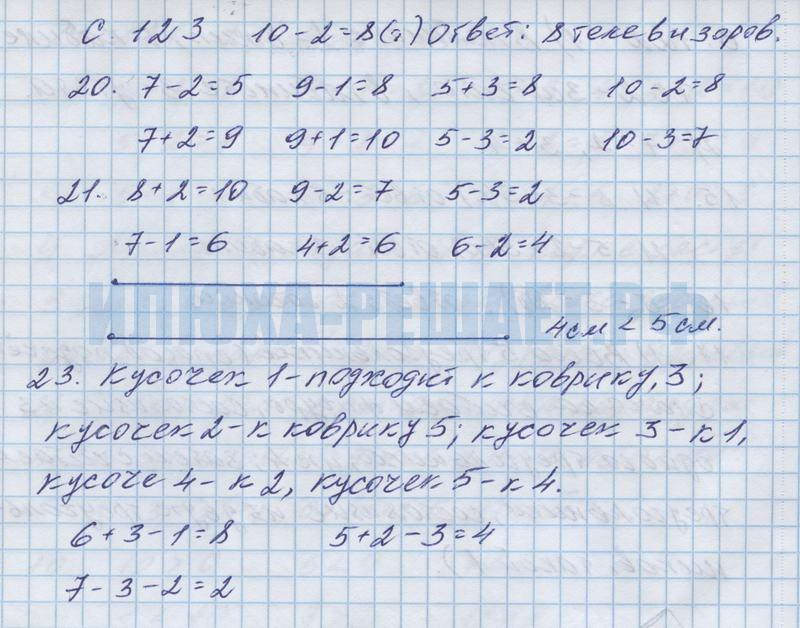 С 123 10-2=8(т) Ответ: 8 телевизоров.
20. 7-2=5 9-1=8 5+3=8 10-2=8
7+2=9 9+1=10 5-3=2 10-3=7
21. 8+2=10 9-2=7 5-3=2
7-1=6 4+2=6 6-2=4
ИЛЮХА-РЕШАЕТ.РФ
4см < 5см.
23. Кусочек 1-подходит к коврику 3;
кусочек 2-к коврику 5; кусочек 3-к 1,
кусоче 4-к 2, кусочек 5-к 4.
6+3-1=8 5+2-3=4
7-3-2=2